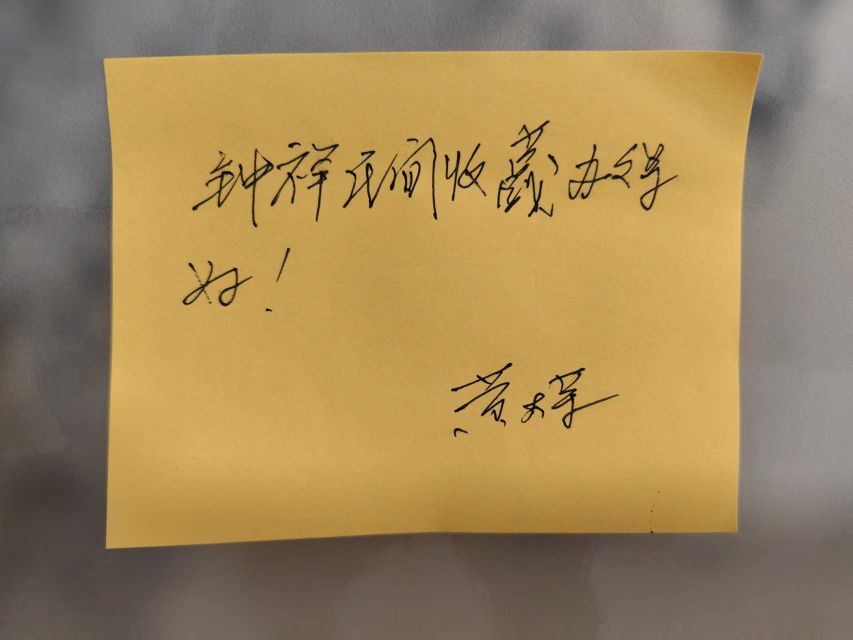 钟祥民间收藏办得
好！
黄大